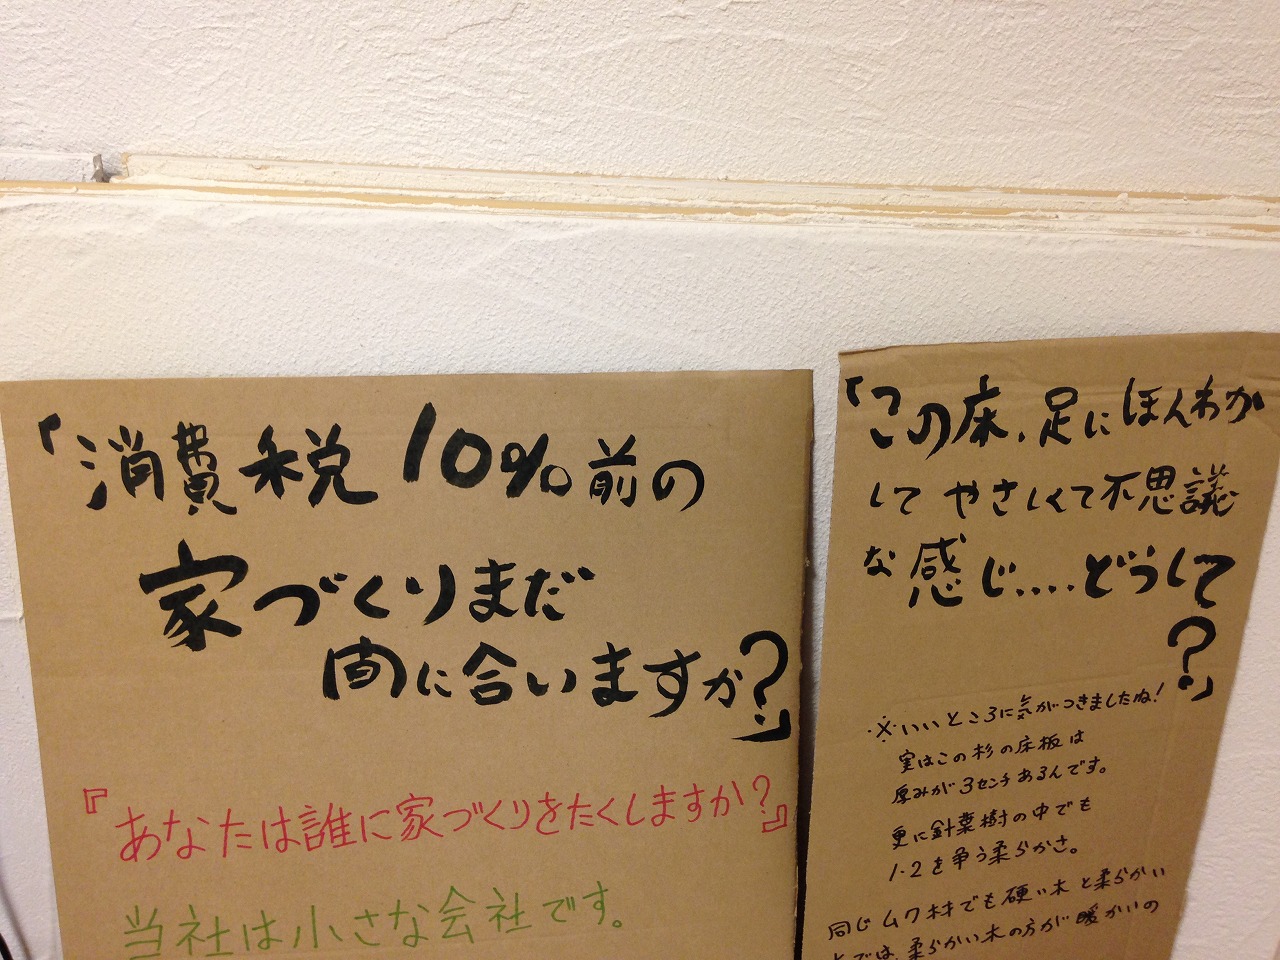 「消費税10%前の
家づくりまだ
間に合いますか?」
『あなたは誰に家づくりをたくしますか?』
当社は小さな会社です。
「この床、足にほんわか
してやさしくて不思議
な感じ....どうして
?」
※いいところに気がつきましたね!
実はこの杉の床板は
厚みが3センチあるんです。
更に針葉樹の中でも
1・2を争う柔らかさ。
同じムク材でも硬い木と柔らかい
では、柔らかい木の方が暖かいの